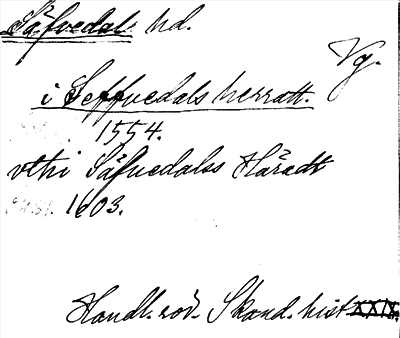 Säfvedals hd.
Vg.
i Seffuedals herratt.
1554.
vthi Säfuedalss Häradt
1603.
Handl. rör. Skand. hist XXIX.